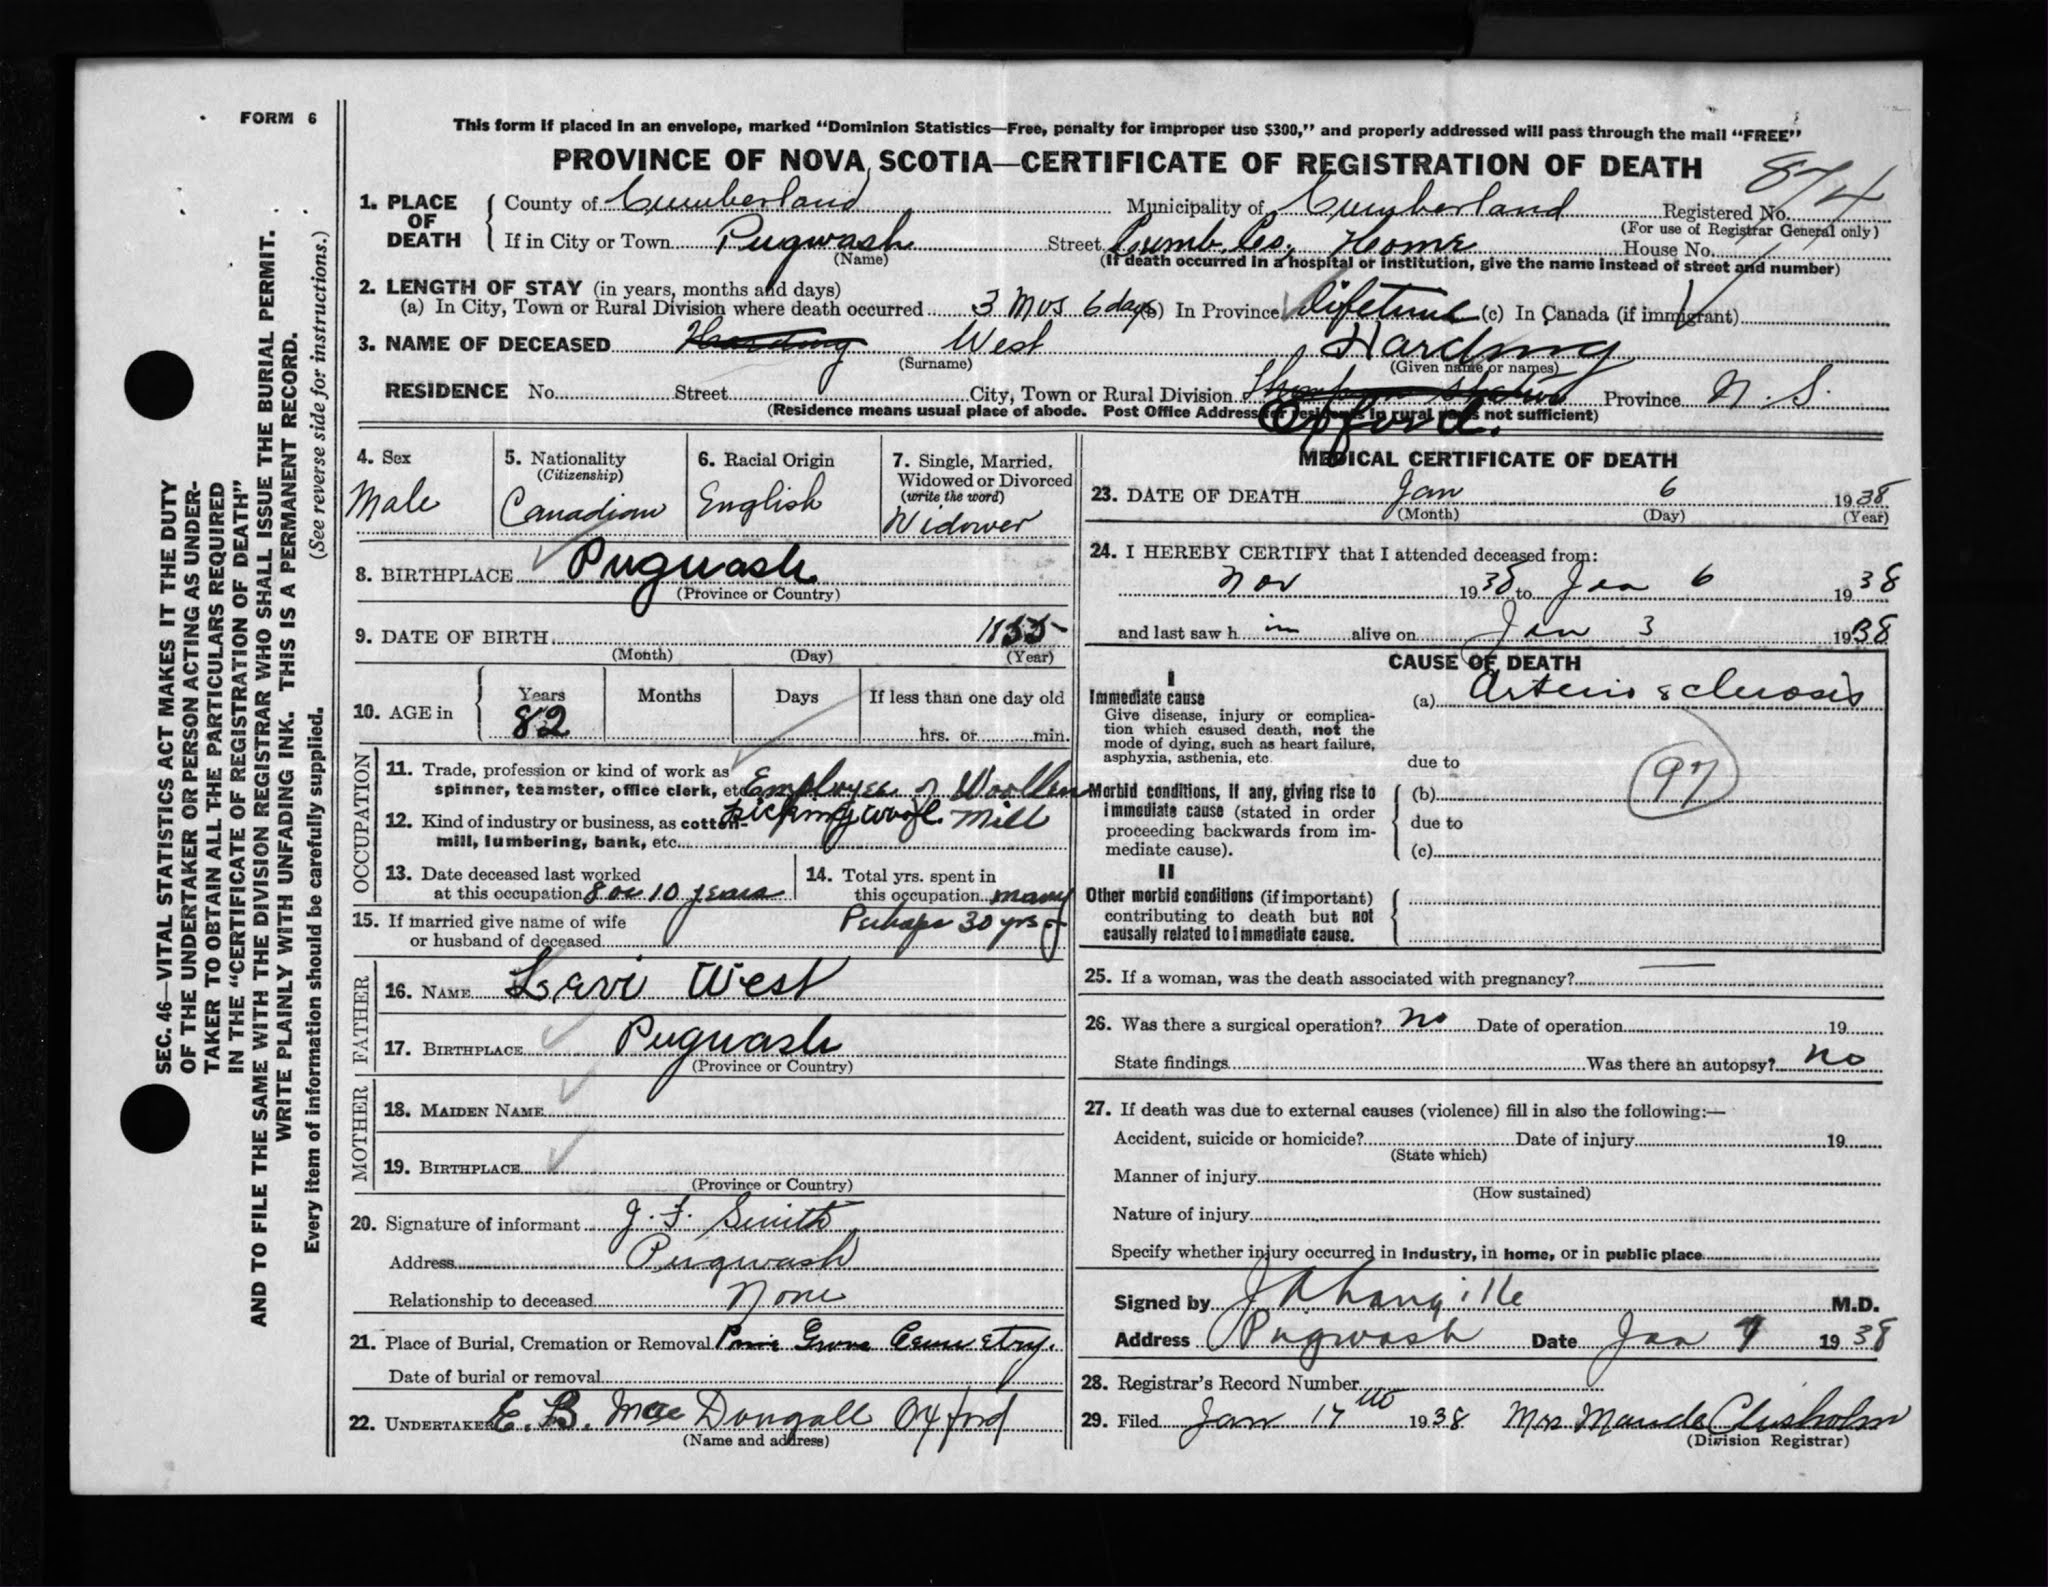 FORM 6
This form if placed in an envelope, marked "Dominion Statistics—Free, penalty for improper use $300," and properly addressed will pass through the mail "FREE"
PROVINCE OF NOVA SCOTIA—CERTIFICATE OF REGISTRATION OF DEATH
874
1. PLACE OF DEATH
County of Cumberland Municipality of Cumberland Registered No.
(For use of Registrar General only)
If in City or Town Pugwash Street Cumb. Co. Home House No.
(Name) (If death occurred in a hospital or institution, give the name instead of street and number)
2. LENGTH OF STAY (in years, months and days)
(a) In City, Town or Rural Division where death occurred 3 Mos 6 days (b) In Province lifetime (c) In Canada (if immigrant)
3. NAME OF DECEASED Harding West Harding
(Surname) (Given name or names)
RESIDENCE No. Street City, Town or Rural Division Thompson Station Province N. S.
(Residence means usual place of abode. Post Office Address for residents in rural parts not sufficient)
Oxford.
4. Sex
Male
5. Nationality
(Citizenship)
Canadian
6. Racial Origin
English
7. Single, Married,
Widowed or Divorced
(write the word)
Widower
8. BIRTHPLACE Pugwash
(Province or Country)
9. DATE OF BIRTH 1855
(Month) (Day) (Year)
10. AGE in Years Months Days If less than one day old
82 hrs. or min.
OCCUPATION
11. Trade, profession or kind of work as
spinner, teamster, office clerk, etc. Employee of Woollen
Picking wool Mill
12. Kind of industry or business, as cotton-
mill, lumbering, bank, etc.
13. Date deceased last worked
at this occupation 8 or 10 years
14. Total yrs. spent in
this occupation many
Perhaps 30 yrs
15. If married give name of wife
or husband of deceased
FATHER
16. NAME Levi West
17. BIRTHPLACE Pugwash
(Province or Country)
MOTHER
18. MAIDEN NAME
19. BIRTHPLACE
(Province or Country)
20. Signature of informant J. F. Smith
Address Pugwash
Relationship to deceased None
21. Place of Burial, Cremation or Removal Pine Grove Cemetry.
Date of burial or removal
22. UNDERTAKER E. B. MacDougall Oxford
(Name and address)
MEDICAL CERTIFICATE OF DEATH
23. DATE OF DEATH Jan 6 1938
(Month) (Day) (Year)
24. I HEREBY CERTIFY that I attended deceased from:
Nov 1938 to Jan 6 1938
and last saw h im alive on Jan 3 1938
CAUSE OF DEATH
I
Immediate cause
Give disease, injury or complica-
tion which caused death, not the
mode of dying, such as heart failure,
asphyxia, asthenia, etc.
(a) Arterio sclerosis
due to
97
Morbid conditions, if any, giving rise to
immediate cause (stated in order
proceeding backwards from im-
mediate cause).
(b)
due to
(c)
II
Other morbid conditions (if important)
contributing to death but not
causally related to immediate cause.
25. If a woman, was the death associated with pregnancy?
26. Was there a surgical operation? No Date of operation 19
State findings Was there an autopsy? No
27. If death was due to external causes (violence) fill in also the following:—
Accident, suicide or homicide? Date of injury 19
(State which)
Manner of injury
(How sustained)
Nature of injury
Specify whether injury occurred in industry, in home, or in public place
Signed by M.D.
Address Pugwash Date Jan 7 1938
28. Registrar's Record Number
29. Filed Jan 17th 1938 Mrs Maude Chisholm
(Division Registrar)
SEC. 46—VITAL STATISTICS ACT MAKES IT THE DUTY
OF THE UNDERTAKER OR PERSON ACTING AS UNDER-
TAKER TO OBTAIN ALL THE PARTICULARS REQUIRED
IN THE "CERTIFICATE OF REGISTRATION OF DEATH"
AND TO FILE THE SAME WITH THE DIVISION REGISTRAR WHO SHALL ISSUE THE BURIAL PERMIT.
WRITE PLAINLY WITH UNFADING INK. THIS IS A PERMANENT RECORD.
Every item of information should be carefully supplied. (See reverse side for instructions.)